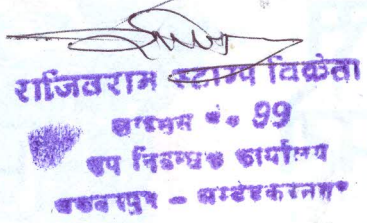 राजितराम स्टाम्प विक्रेता
लाइसेंस नं. 99
उप निबन्धक कार्यालय
अकबरपुर - अम्बेडकरनगर